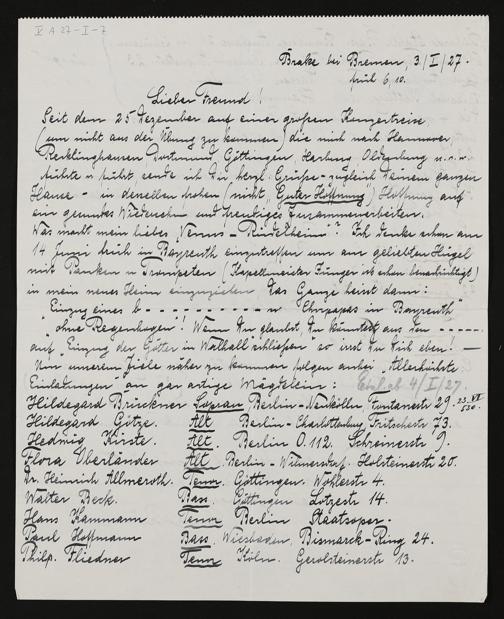 V A 27-I-7
Brake bei Bremen, 3/I/27.
früh 6,10.
Lieber Freund!
Seit dem 25 Dezember auf einer großen Konzertreise
(um nicht aus der Übung zu kommen) die mich nach Hannover,
Recklinghausen Dortmund, Göttingen, Harburg Oldenburg u.s.w.
führte u führt, sende ich Dir herzl. Grüße - zugleich Deinem ganzen
Hause - in derselben frohen (nicht "Guter Hoffnung") Hoffnung auf
ein gesundes Wiedersehn und freudiges Zusammenarbeiten.
Was macht mein liebes Venus- "Rüdelheim"? Ich denke schon am
14 Juni früh in Bayreuth einzutreffen um am geliebten Hügel
mit Pauken u Trompeten (Kapellmeister ist schon benachrichtigt)
in mein neues Heim einzuziehen. Das Ganze heisst dann:
"Einzug eines b - - - - - - - - - - n Ehepaars in Bayreuth"
"ohne Regenbogen"! Wenn Du glaubst, Du könntest aus den - - - - -
auf "Einzug der Götter in Walhall schließen" so irrst Du Dich eben! -
Um unserem Ziele näher zu kommen folgen anbei "Allerhöchste
Einladungen" an gar artige Mägdelein: Erled. 4/I/27.
Hildegard Brückner Sopran Berlin-Neukölln, Fontanestr 29. 23.VI 530.
Hildegard Götze. Alt Berlin-Charlottenburg, Fritschestr 73.
Hedwig Kirste. Alt. Berlin O.112. Schreinerstr 9.
Flora Oberländer Alt. Berlin-Wilmersdorf. Holsteinerstr 20.
Dr. Heinrich Allmeroth. Tenor. Göttingen. Wöhlerstr 4.
Walter Beck. Bass. Göttingen Lotzestr 14.
Hans Kammann Tenor Berlin Staatsoper.
Paul Hoffmann Bass. Wiesbaden. Bismarck-Ring 24.
Philp. Fliedner Tenor Köln. Gerolsteinerstr 13.